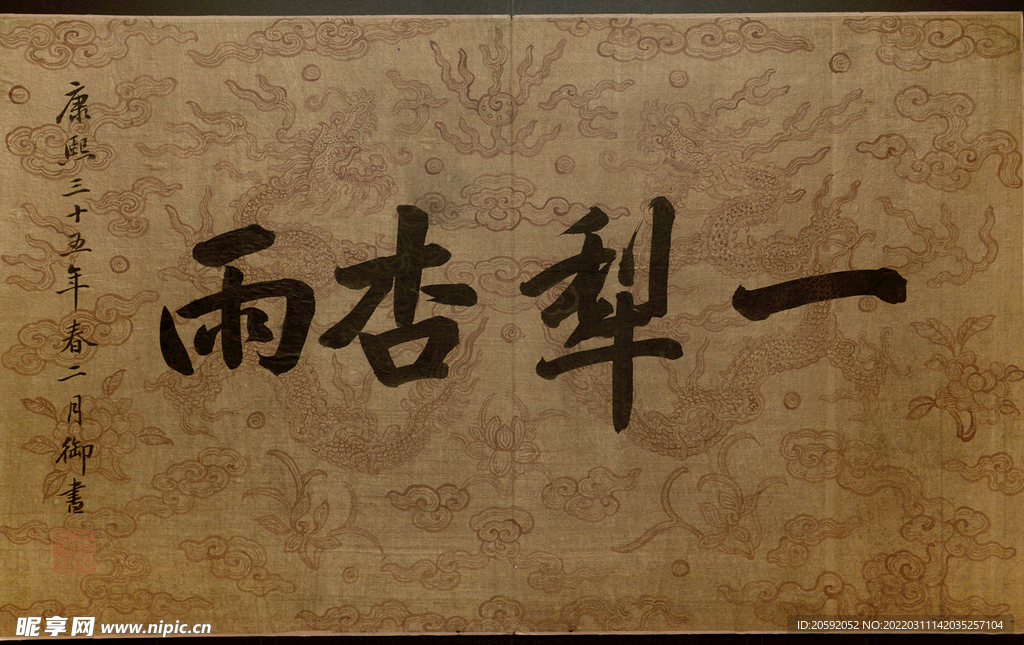 一犁杏雨
康熙三十五年春二月御書
昵享网 www.nipic.cn
ID:20592052 NO:20220311142035257104